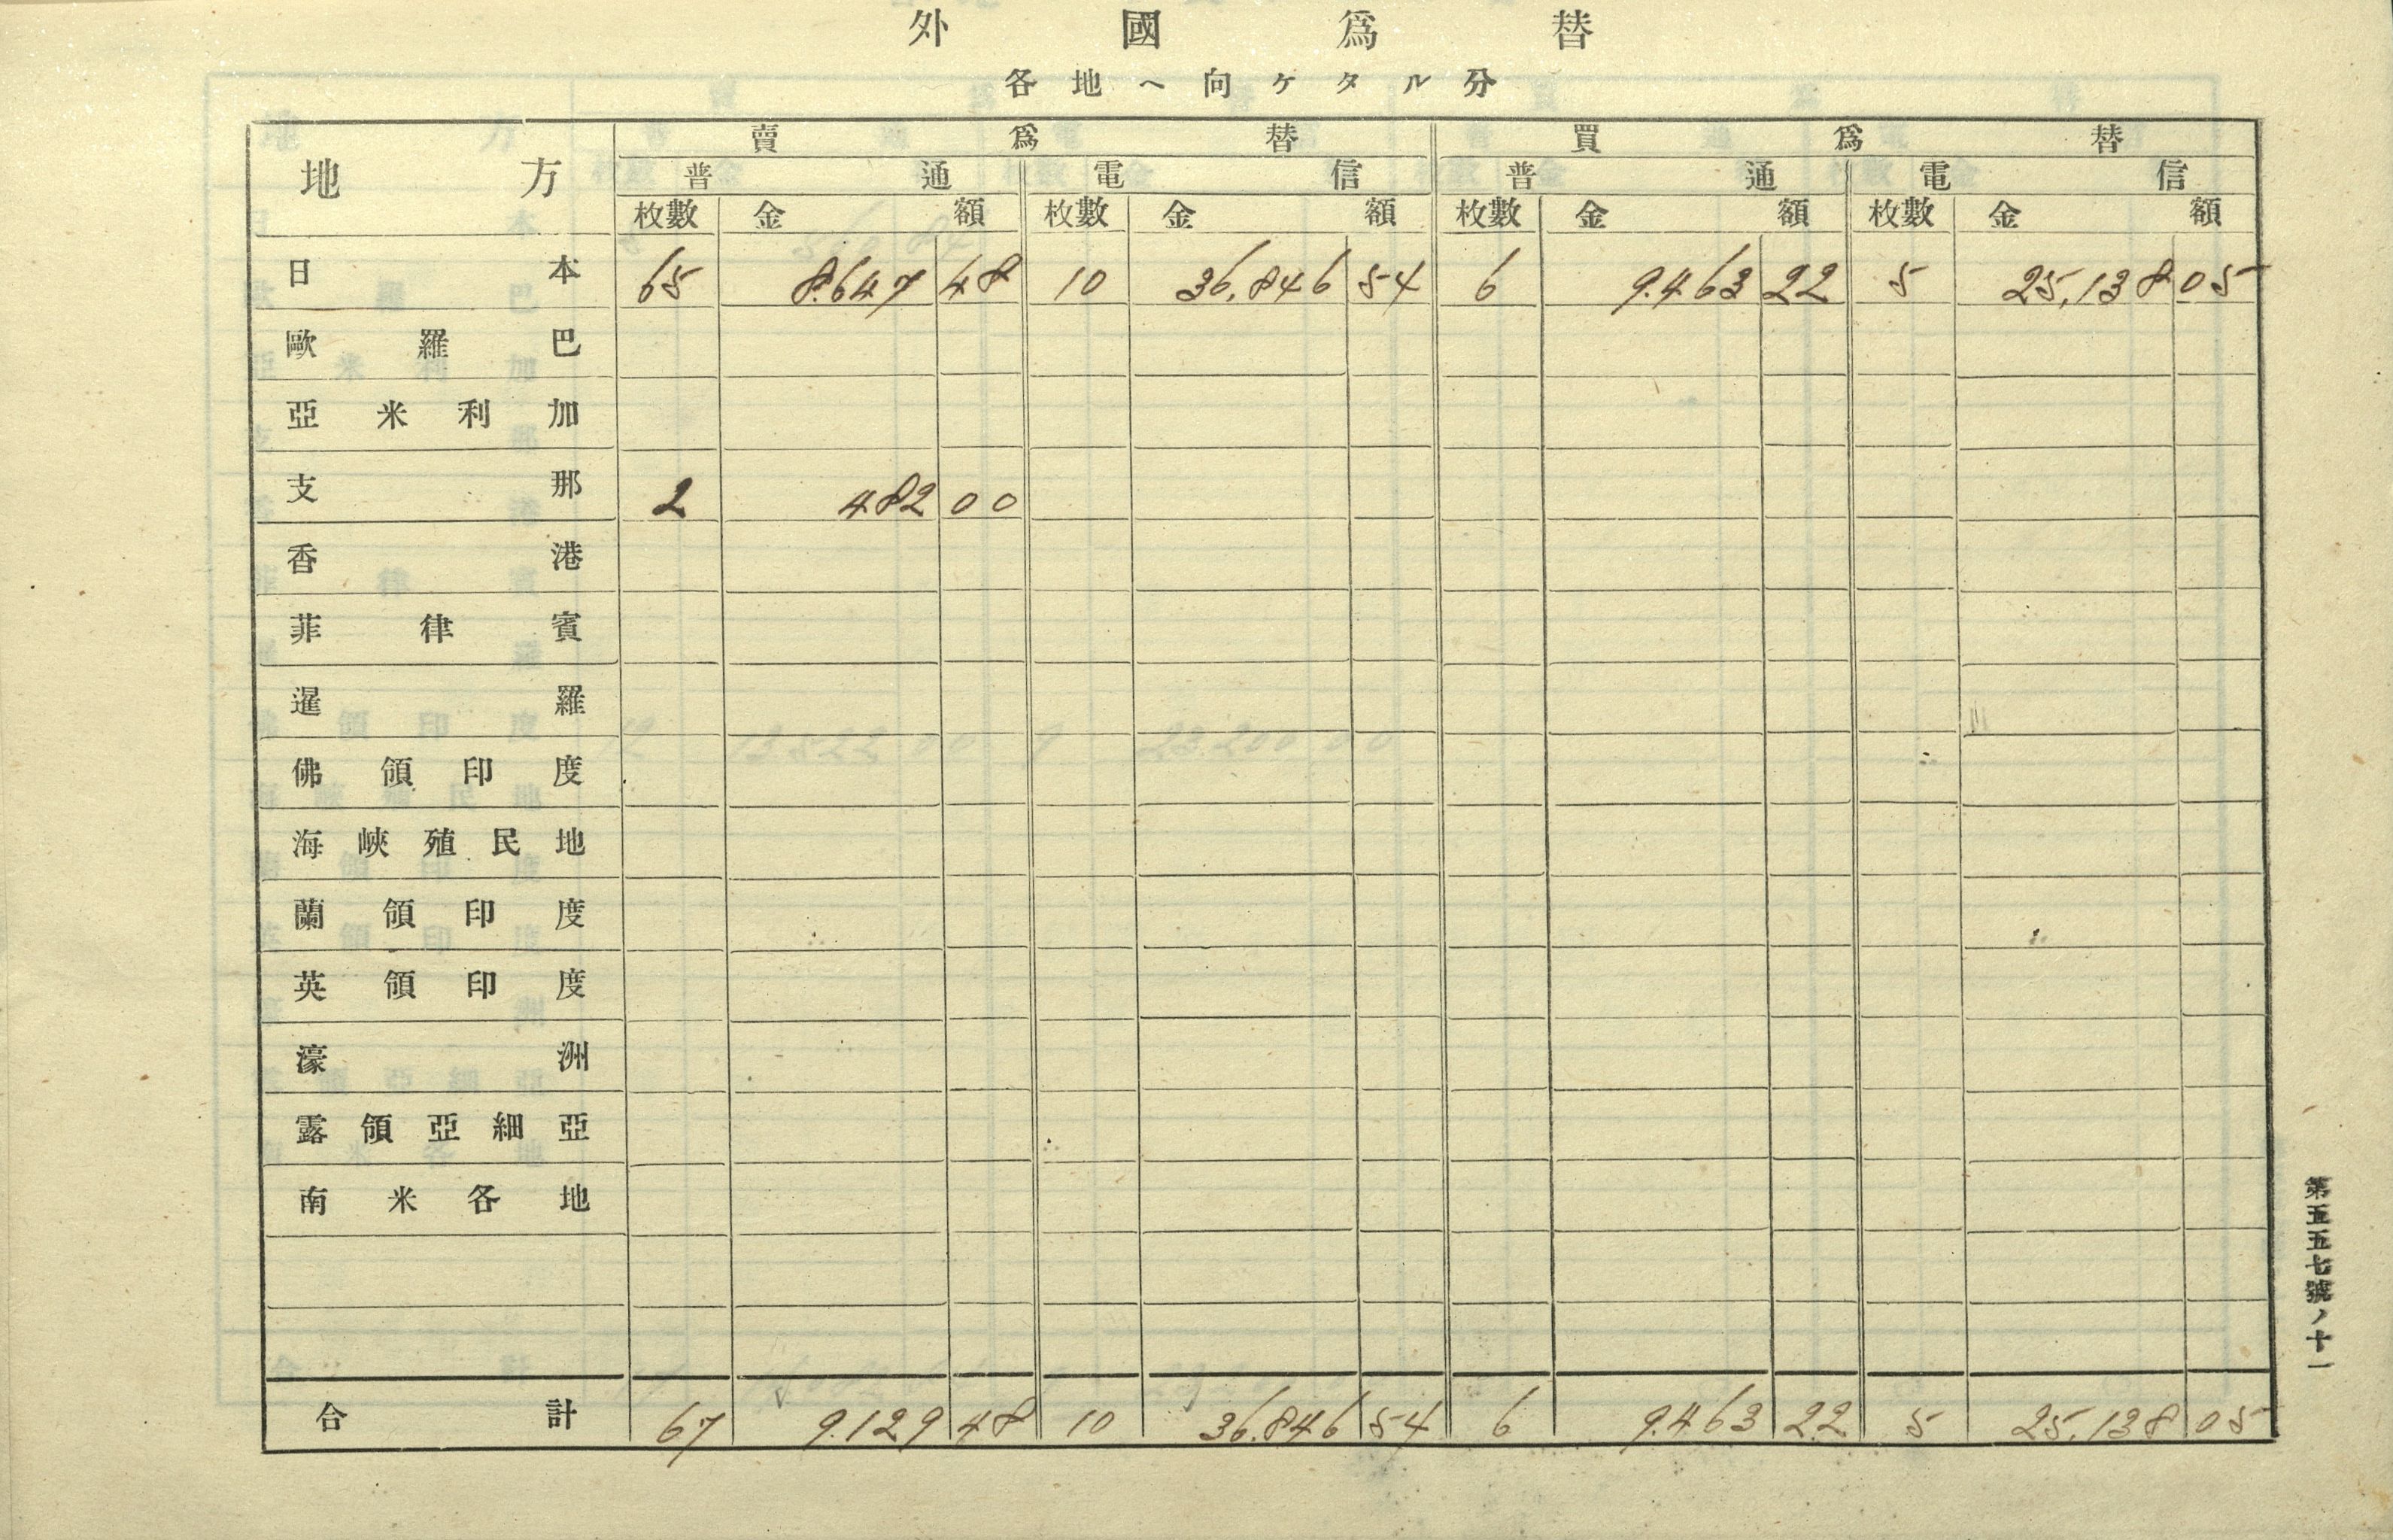 外國爲替
各地ヘ向ケタル分
地方 賣爲替 買爲替
普通 電信 普通 電信
枚數 金額 枚數 金額 枚數 金額 枚數 金額
日本 65 8.647 48 10 36.846 54 6 9.463 22 5 25.138 05
歐羅巴
亞米利加
支那 2 482 00
香港
菲律賓
暹羅
佛領印度
海峽殖民地
蘭領印度
英領印度
濠洲
露領亞細亞
南米各地
合計 67 9.129 48 10 36.846 54 6 9.463 22 5 25.138 05
第五五七號ノ十一